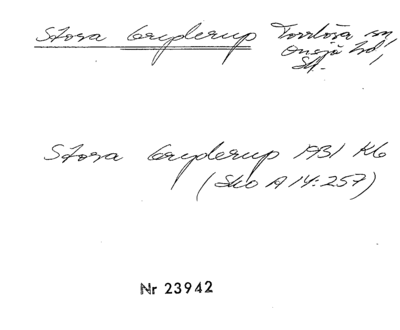 Stora Gryderup Torrlösa sn,
Onsjö hd,
Sk.
Stora Gryderup 1931 Kb
(Sko A 14:257)
Nr 23942